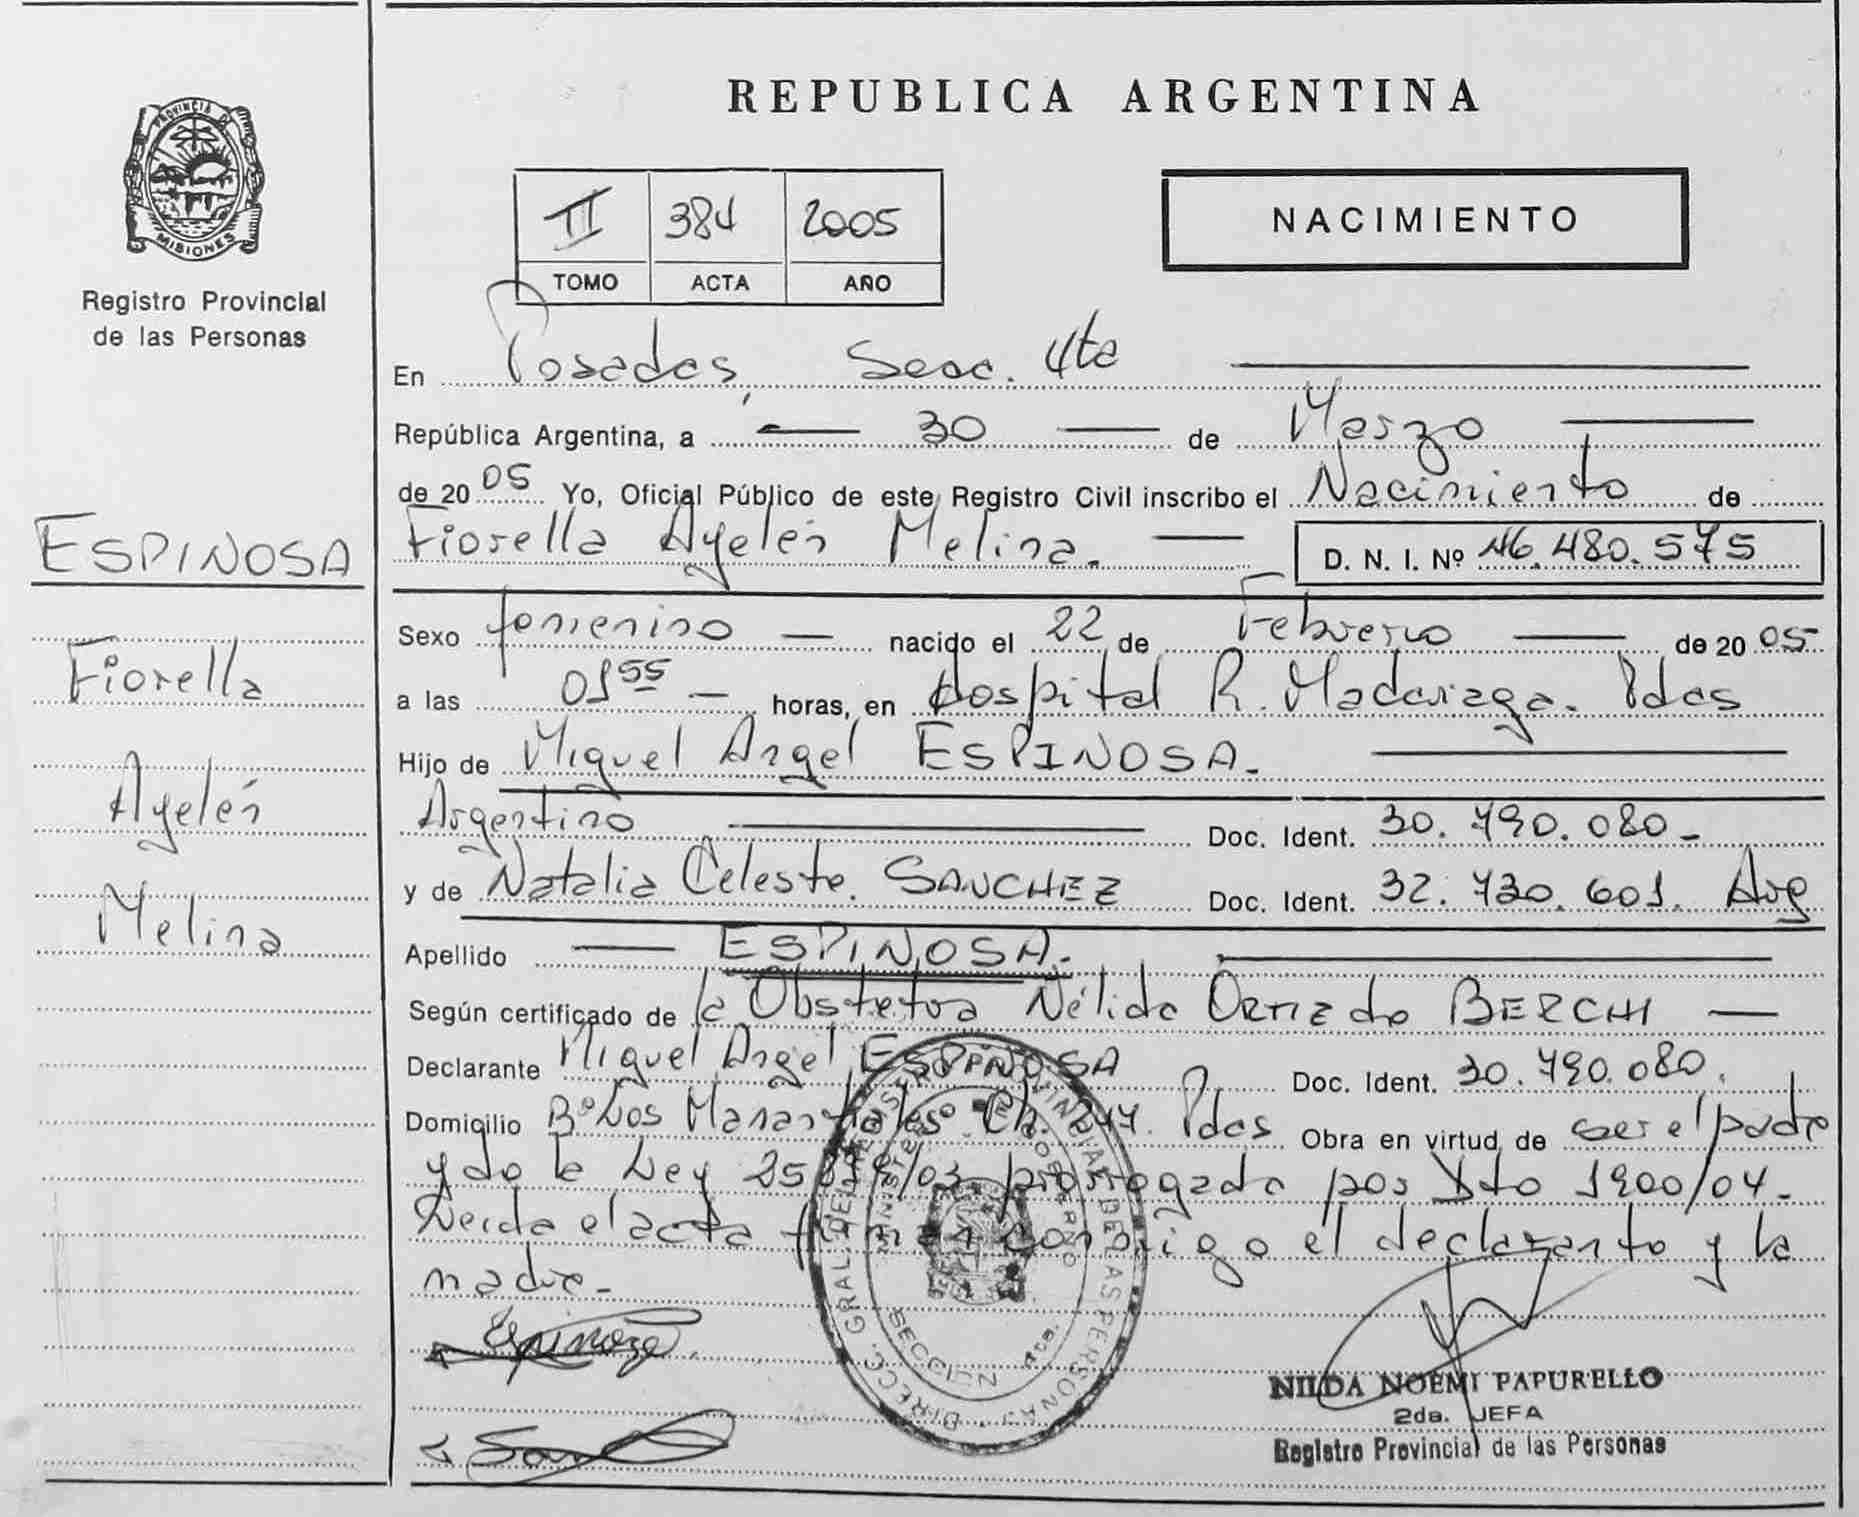 REPUBLICA ARGENTINA
PROVINCIA DE
MISIONES
Registro Provincial
de las Personas
II 384 2005
TOMO ACTA AÑO
NACIMIENTO
En Posadas, Secc. 4ta
República Argentina, a 30 de Marzo
de 2005 Yo, Oficial Público de este Registro Civil inscribo el Nacimiento de
ESPINOSA
Fiorella Ayelén Melina. D. N. I. Nº 46.480.575
Sexo femenino nacido el 22 de Febrero de 2005
Fiorella
a las 01 55 horas, en Hospital R. Madariaga. Pdas
Hijo de Miguel Angel ESPINOSA.
Ayelén
Argentino Doc. Ident. 30.790.080
y de Natalia Celeste SANCHEZ Doc. Ident. 32.730.601. Arg
Melina
Apellido ESPINOSA.
Según certificado de la Obstetra Nélida BERCHI
Declarante Miguel Angel ESPINOSA Doc. Ident. 30.790.080.
Domicilio Bº Los Manantiales Ch. 247. Pdas Obra en virtud de ser el padre
y de la Ley prorrogada por Dto 1900/04.
Leida el acta firman conmigo el declarante y la
madre.
Espinoza
DIRECC. GRAL. DEL REGISTRO PROVINCIAL DE LAS PERSONAS
MINISTERIO DE GOBIERNO
SECCION 4ta.
NILDA NOEMI PAPURELLO
2da. JEFA
Registro Provincial de las Personas